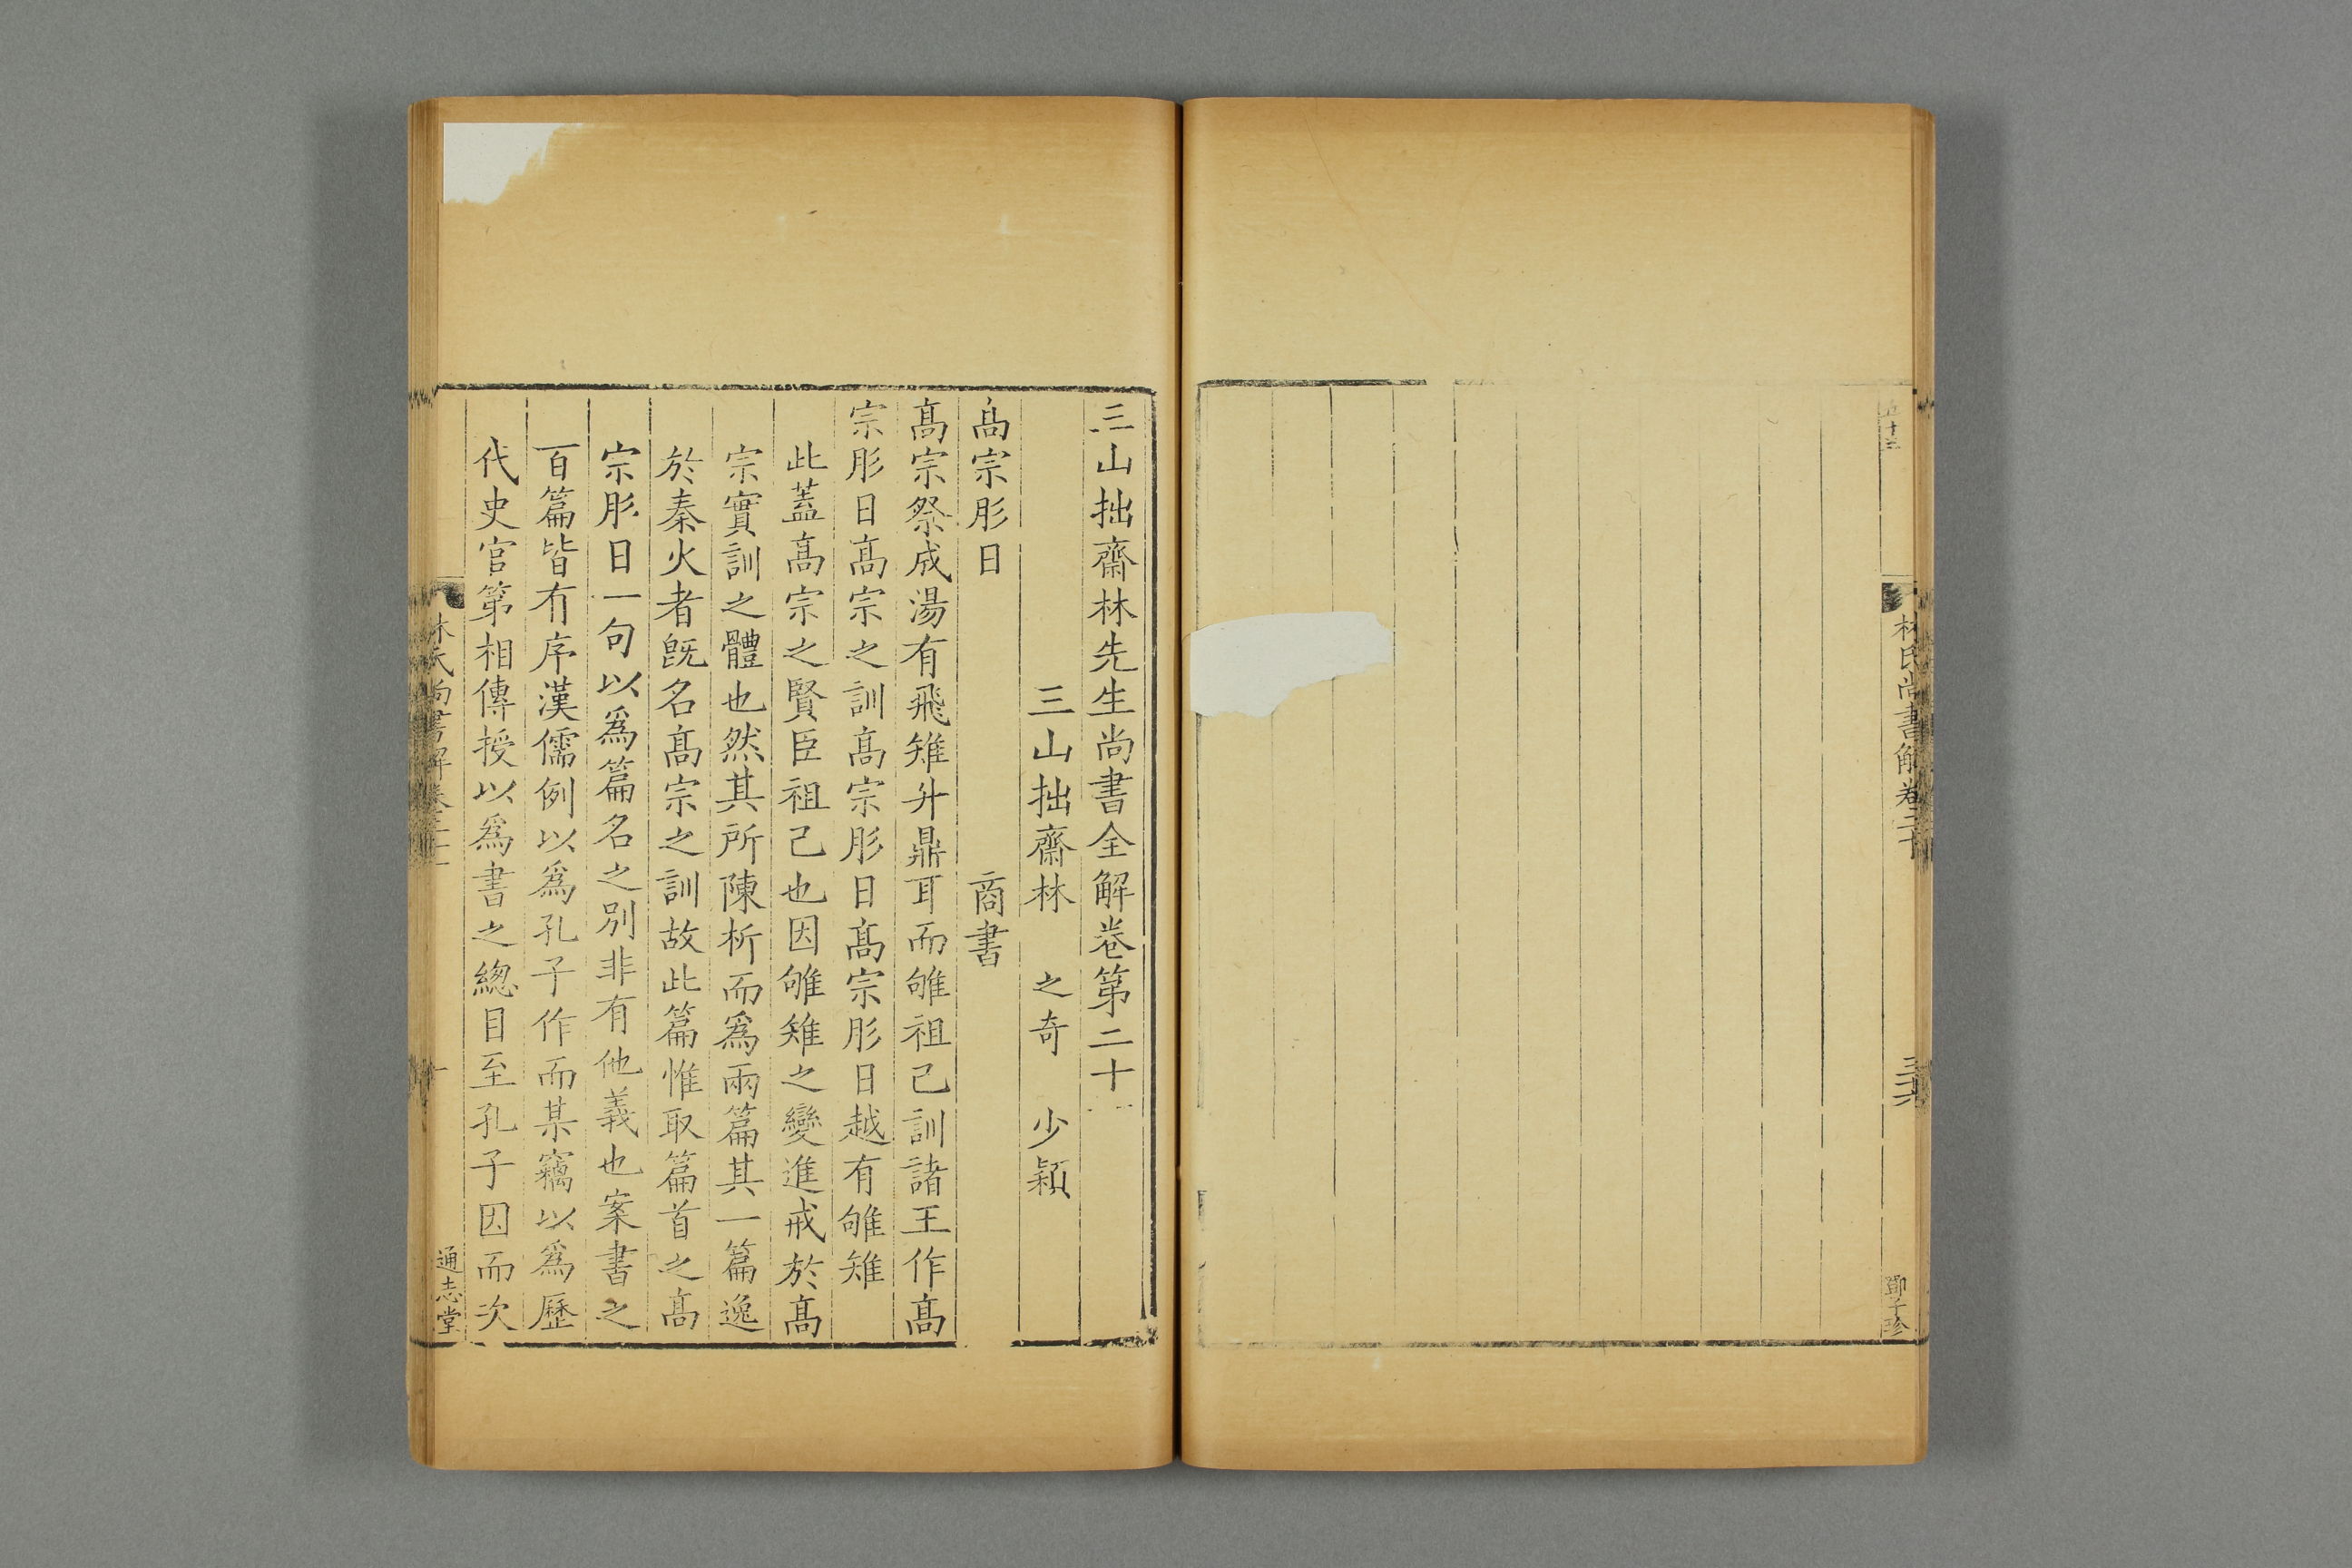 林氏尚書解卷二十
三六
鄧子珍
三山拙齋林先生尚書全解卷第二十
三山拙齋林 之奇 少穎
髙宗肜日 商書
髙宗祭成湯有飛雉升鼎耳而雊祖己訓諸王作髙
宗肜日髙宗之訓髙宗肜日髙宗肜日越有雊雉
此蓋髙宗之賢臣祖己也因雊雉之變進戒於髙
宗實訓之體也然其所陳析而爲兩篇其一篇逸
於秦火者旣名髙宗之訓故此篇惟取篇首之髙
宗肜日一句以爲篇名之別非有他義也案書之
百篇皆有序漢儒例以爲孔子作而某竊以爲歷
代史官第相傳授以爲書之總目至孔子因而次
林氏尚書解卷二十一
一
通志堂